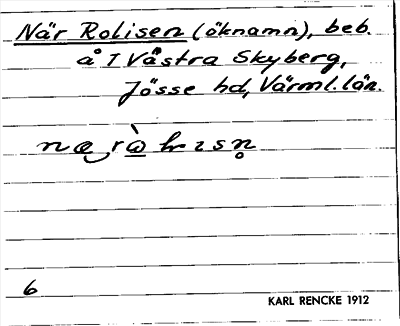 När Rolisen (öknamn), beb.
å I Västra Skyberg,
Jösse hd, Värml. län.
6
KARL RENCKE 1912